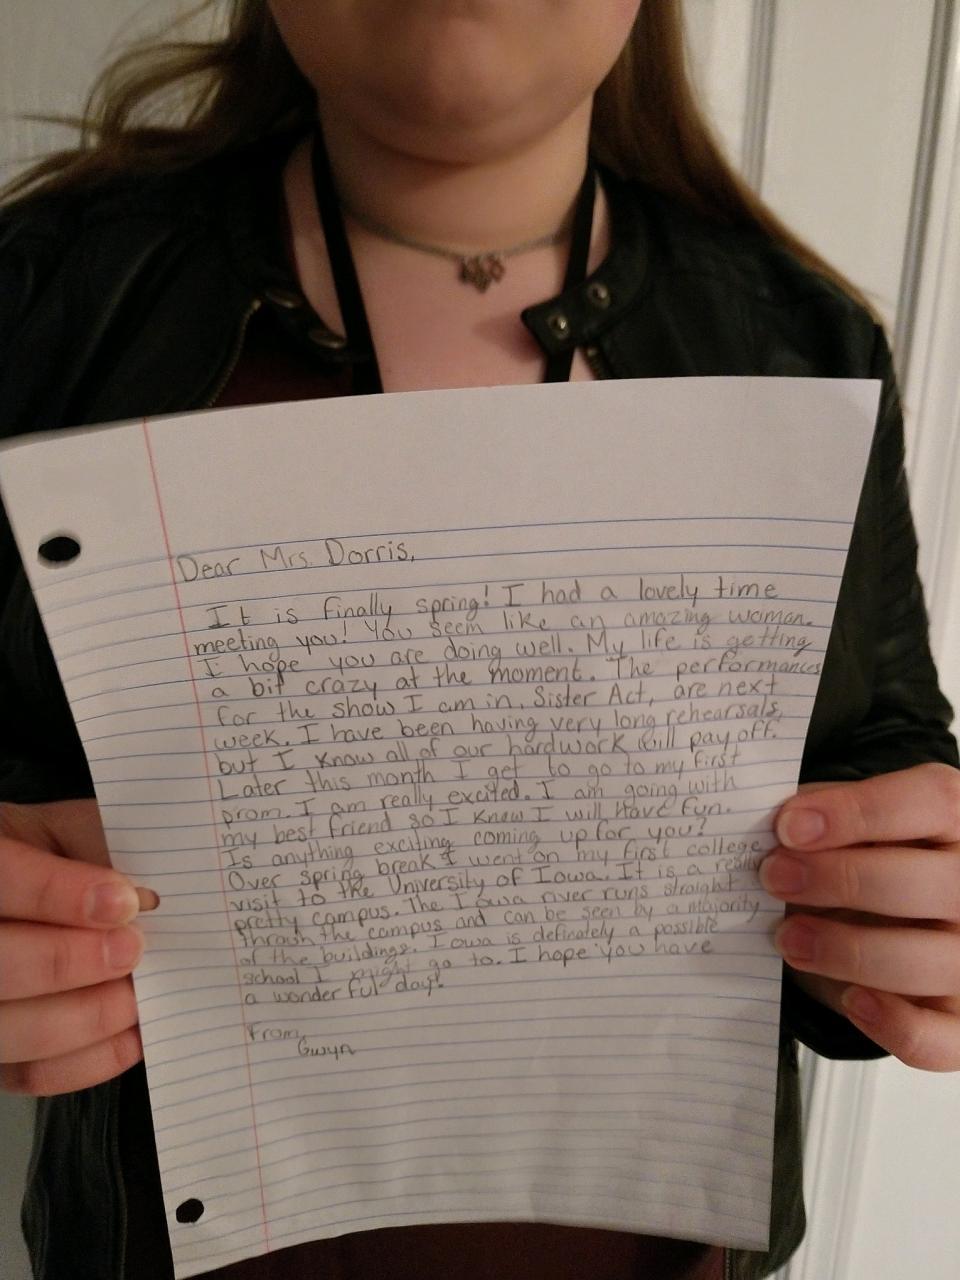 Dear Mrs. Dorris,
It is finally spring! I had a lovely time
meeting you! You seem like an amazing woman.
I hope you are doing well. My life is getting
a bit crazy at the moment. The performances
for the show I am in, Sister Act, are next
week. I have been having very long rehearsals,
but I know all of our hardwork will pay off.
Later this month I get to go to my first
prom. I am really excited. I am going with
my best friend so I know I will have fun.
Is anything exciting coming up for you?
Over spring break I went on my first college
visit to the University of Iowa. It is a really
pretty campus. The Iowa river runs straight
throuh the campus and can be seen by a majority
of the buildings. Iowa is definately a possible
school I might go to. I hope you have
a wonderful day!
From,
Gwyn